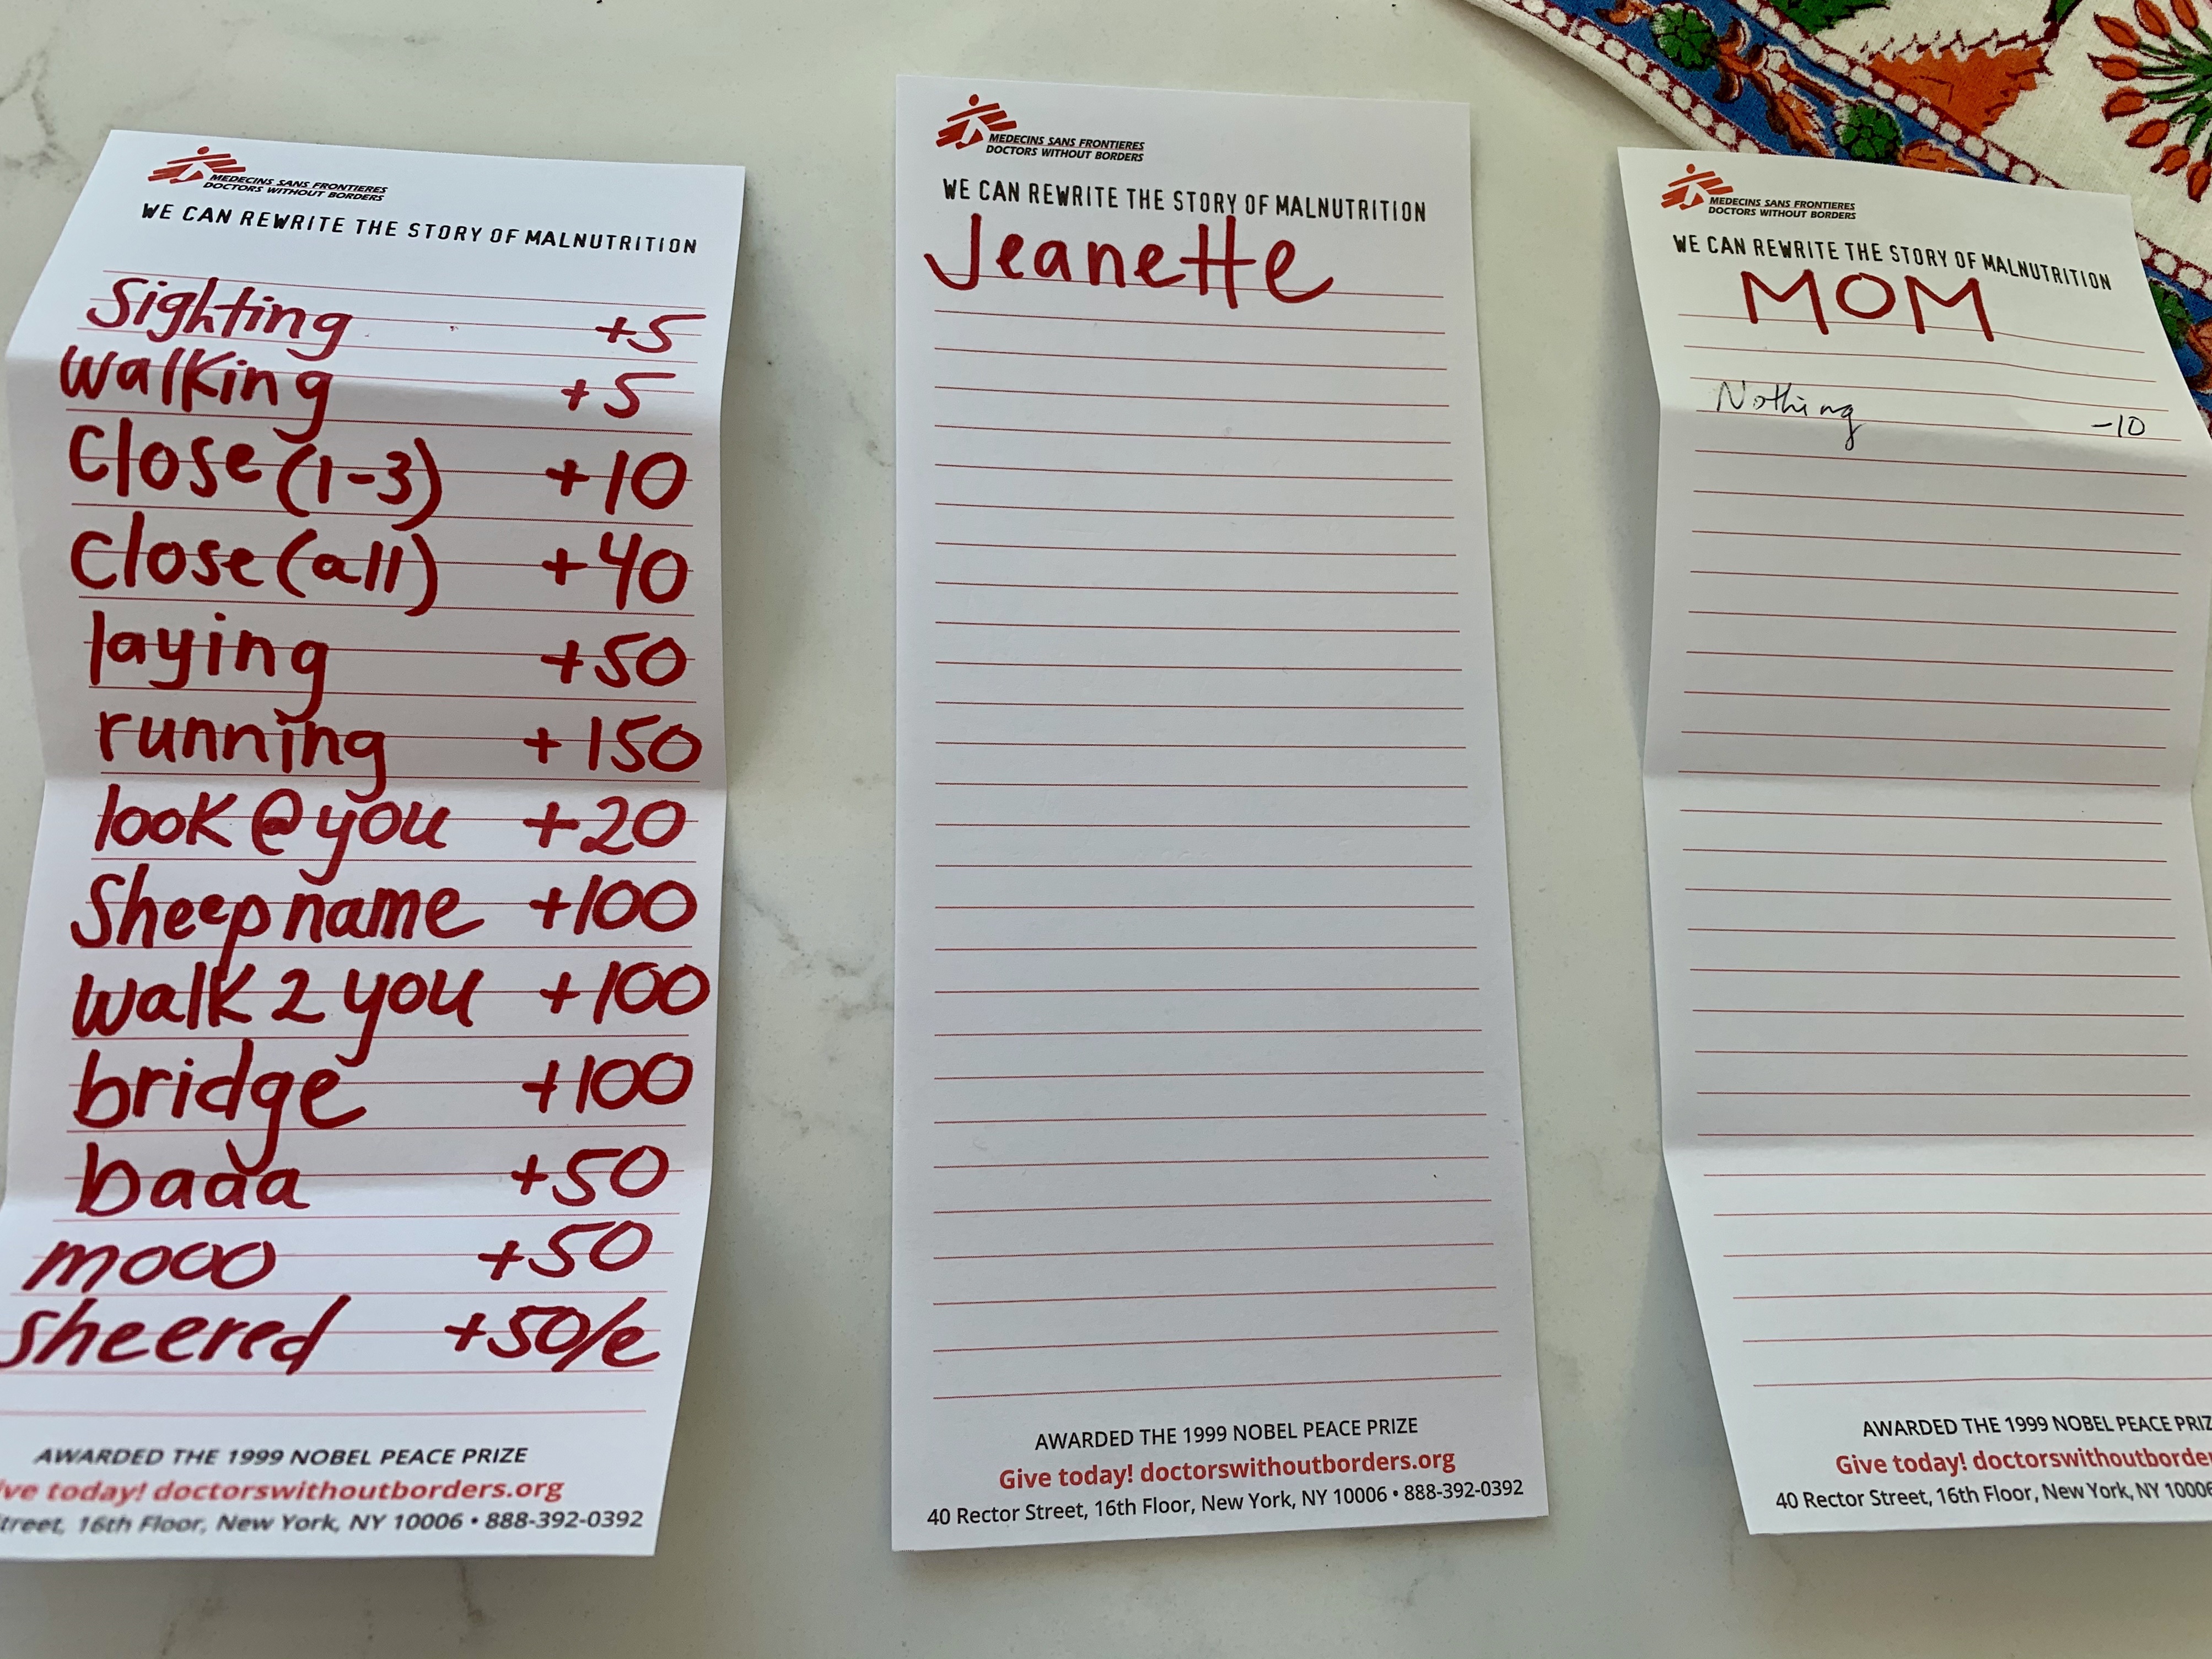 MEDECINS SANS FRONTIERES
DOCTORS WITHOUT BORDERS
WE CAN REWRITE THE STORY OF MALNUTRITION
Sighting +5
walking +5
close (1-3) +10
close (all) +40
laying +50
running +150
look @ you +20
Sheep name +100
walk 2 you +100
bridge +100
baaa +50
mooo +50
sheered +50/e
AWARDED THE 1999 NOBEL PEACE PRIZE
ve today! doctorswithoutborders.org
treet, 16th Floor, New York, NY 10006 • 888-392-0392
MEDECINS SANS FRONTIERES
DOCTORS WITHOUT BORDERS
WE CAN REWRITE THE STORY OF MALNUTRITION
Jeanette
AWARDED THE 1999 NOBEL PEACE PRIZE
Give today! doctorswithoutborders.org
40 Rector Street, 16th Floor, New York, NY 10006 • 888-392-0392
MEDECINS SANS FRONTIERES
DOCTORS WITHOUT BORDERS
WE CAN REWRITE THE STORY OF MALNUTRITION
MOM
Nothing -10
AWARDED THE 1999 NOBEL PEACE PRIZ
Give today! doctorswithoutborder
40 Rector Street, 16th Floor, New York, NY 10006